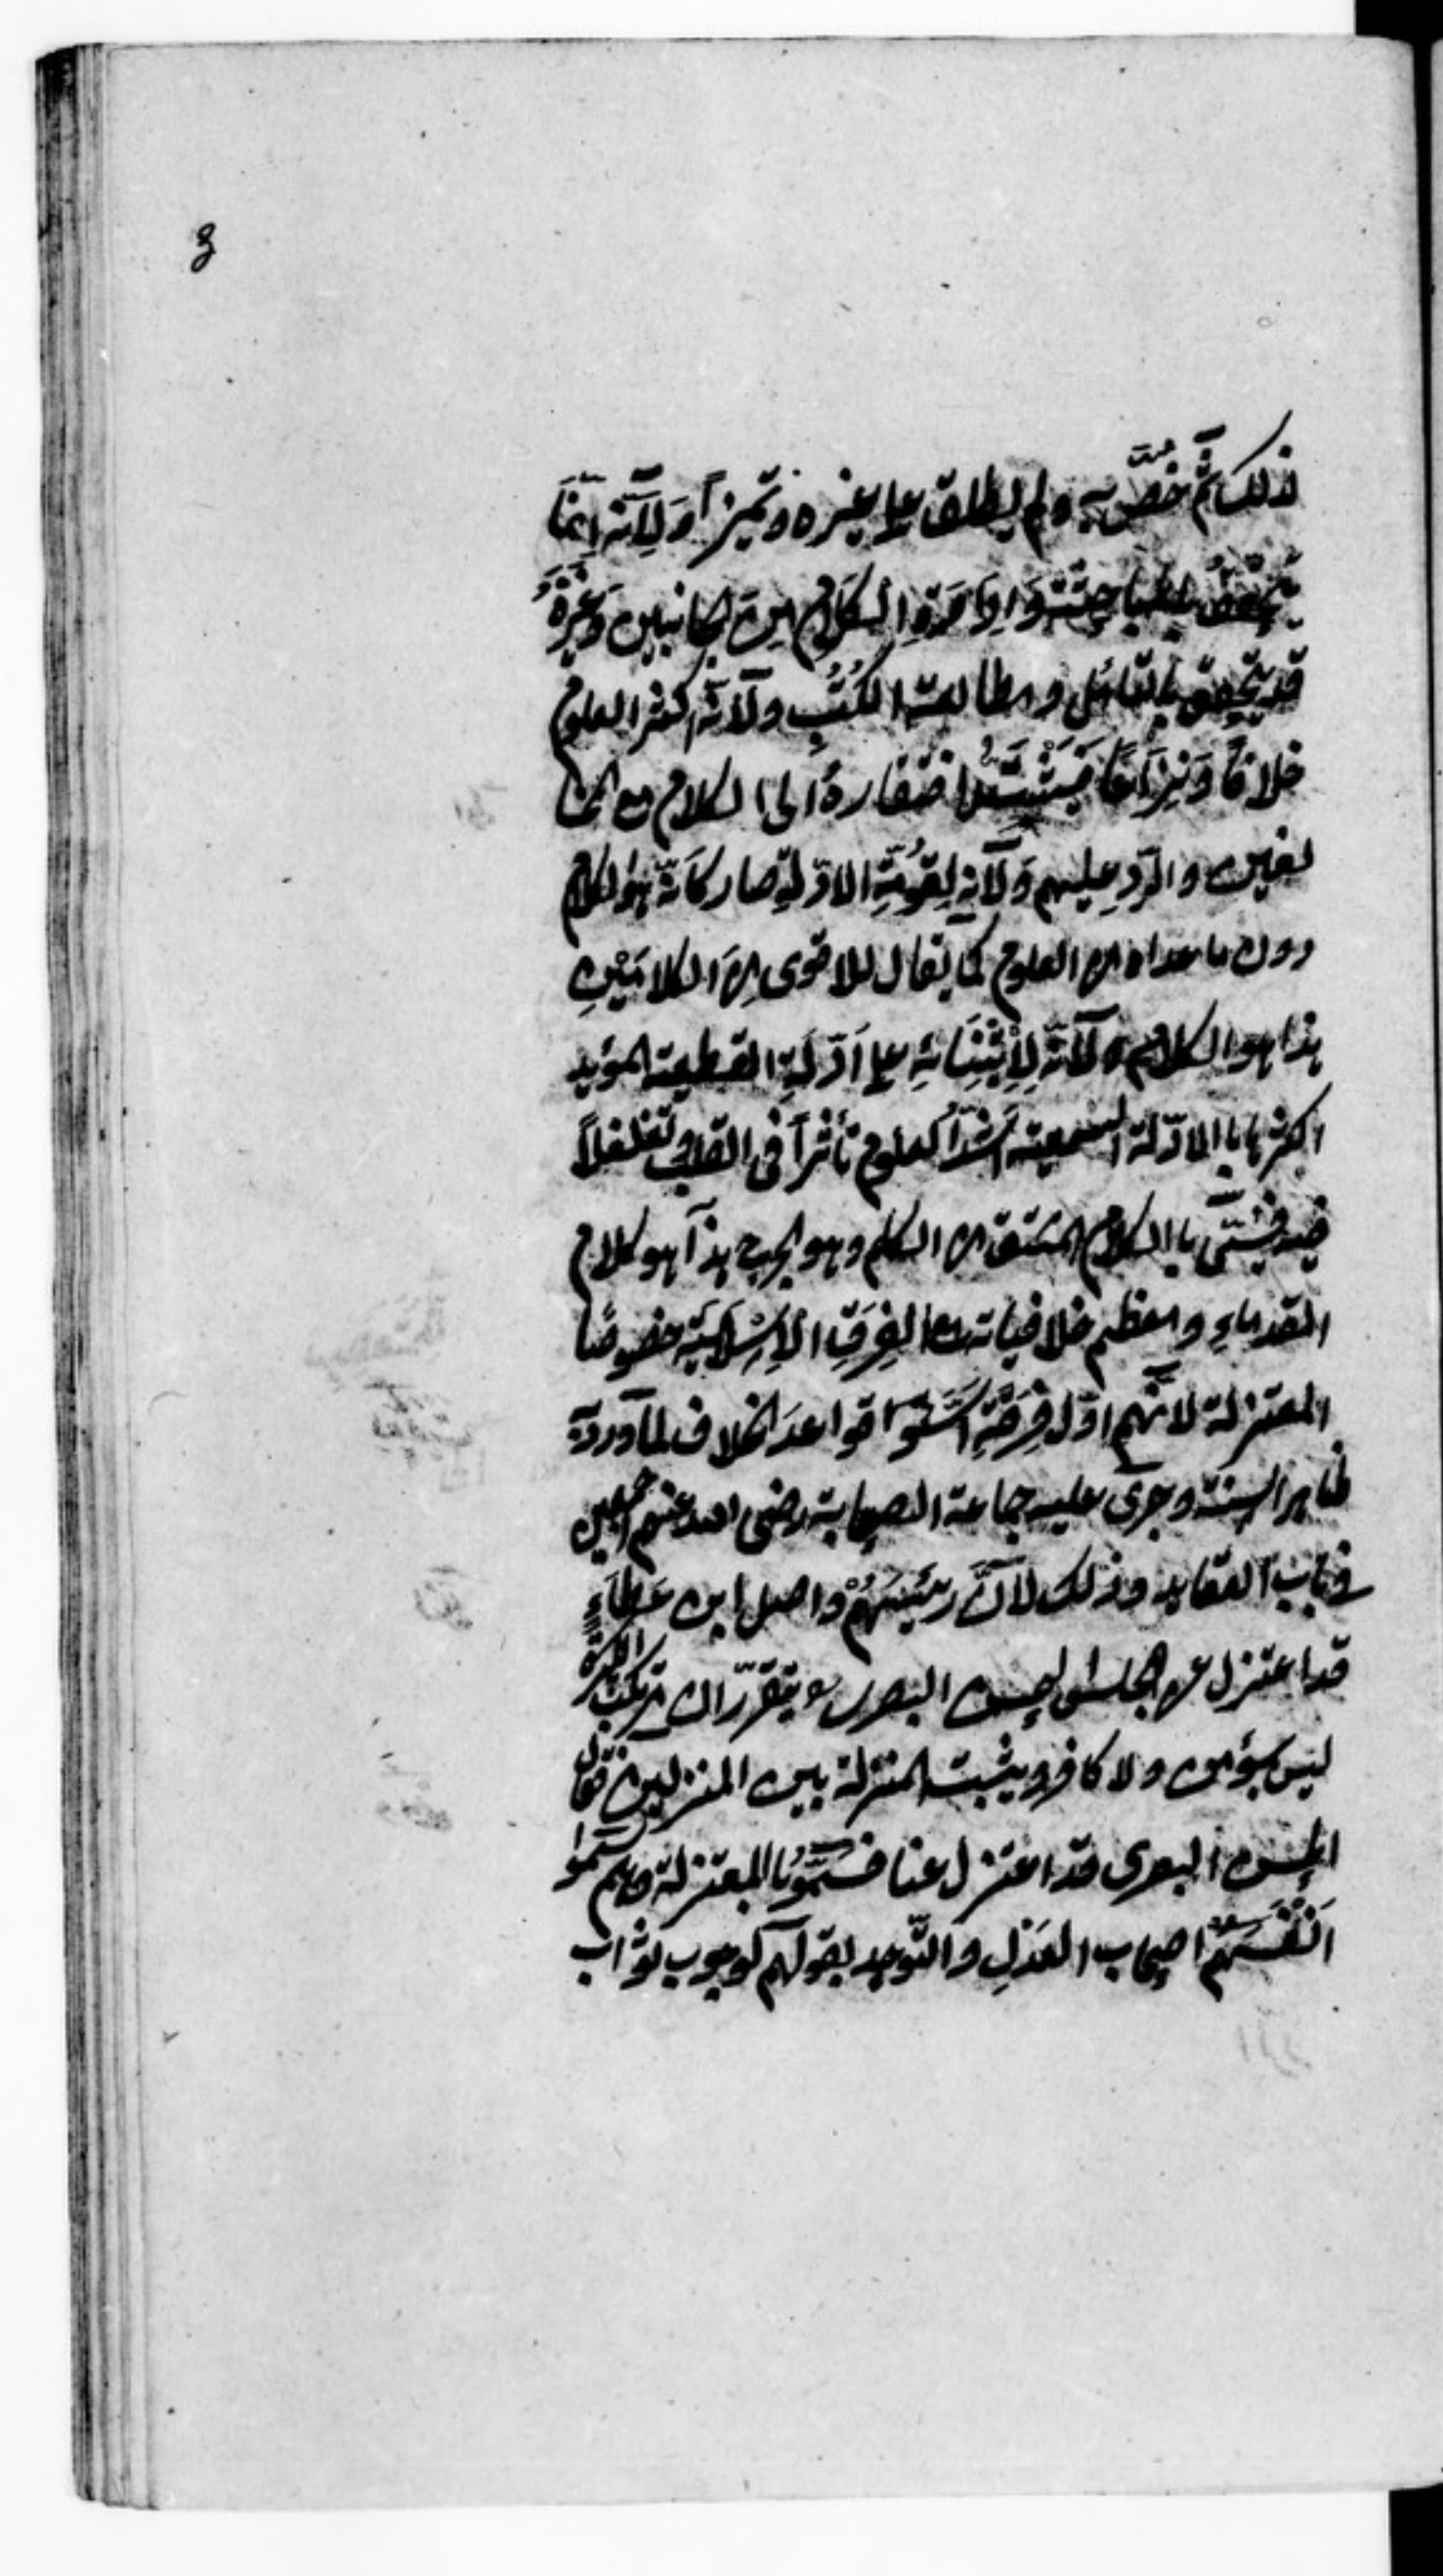 3
لذلك ثمّ خُصّ به ولم يطلق على غيره وتميزاً وَلِاَنّه اِنّمَا
يَتَحَقّقُ بالمباحِثَةِ وَاِدَارَةِ الكَلَامِ مِنَ الجانبين وَغَيْرُهُ
قَد يتحقق بالتّامُّل ومطالعة الكُتُبِ ولاَنّه اكثر العلوم
خلافاً وَنِزَاعًا فَيَشْتَدُّ افتقارهُ الى الكلام مع المخا
لفين والرّدِ عليهم وَلاَنّه لِقُوّةِ الادّلةِ صار كَاَنّهُ هُوَ الكلام
دون ما عداه من العلوم كما يقال للاقوى مِنَ الكلامَيْنِ
هذا هو الكلام ولاَنّهُ لِاِبْتِنَائِهِ على اَدّلَةِ القطعية المؤيد
اكثرها باالادّلة السمعية اَشَدُّ العلوم تأثراً فى القلب وتغلغلاً
فيه فسُمّى باالكلام المشتق من الكلم وهو الجرح هذا هو كلام
القدماءِ ومعظم خلافياته مع الفِرَقِ الاِسْلَامِيّةِ خصوصًا
المعتزلة لانّهم اوّل فِرْقَةٍ اَسّسُوا قواعدَ الخلاف لما ورد به
ظاهر السنة وجرى عليه جماعة الصحابة رضى الله عنهم اجمعين
فى باب العقايد وذلك لاَنَّ رَئيسَهُمْ واصل ابن عَطَاءٍ
قد اعتزل عن مجلس الحسن البصرى يقرّر ان مرتكب الكبيرة
ليس بمؤمن ولا كافر ويثبت المنزلة بين المنزلتين فقال
الحسن البصرى قد اعتزل عنا فسُمُّوا المعتزلة وهم سموا
اَنْفُسَهُمْ اصحاب العَدْلِ والتّوحيد لقولهم لوجوب ثواب